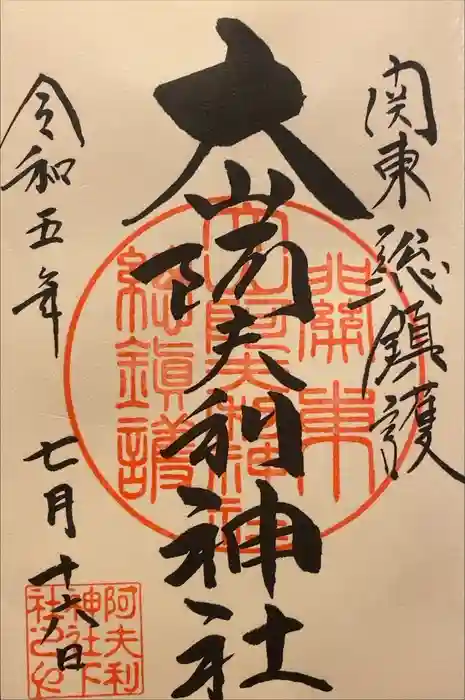 関東総鎮護
大山阿夫利神社
令和五年
七月十六日
關東
大山阿夫利神社
総鎮護
阿夫利
神社下
社之印